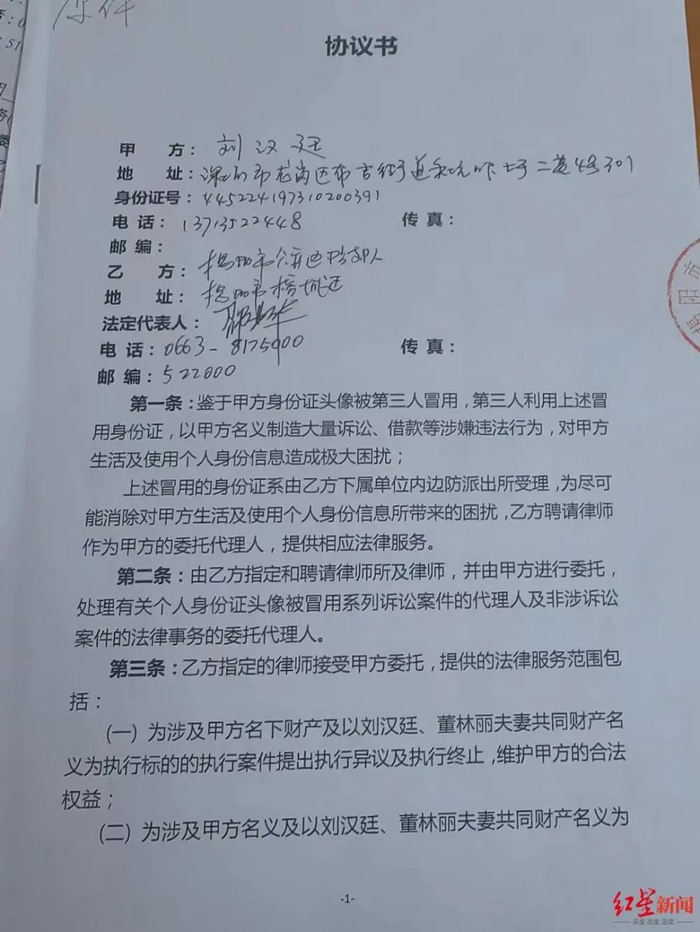 原件
协议书
甲 方：刘汉廷
地 址：深圳市龙岗区布吉街道
身份证号：445224197310200391
电 话：13713522448 传 真：
邮 编：
乙 方：揭阳市公安局榕城
地 址：揭阳市榕城区
法定代表人：
电 话：0663-8175000 传 真：
邮 编：522000
第一条：鉴于甲方身份证头像被第三人冒用，第三人利用上述冒
用身份证，以甲方名义制造大量诉讼、借款等涉嫌违法行为，对甲方
生活及使用个人身份信息造成极大困扰；
上述冒用的身份证系由乙方下属单位内边防派出所受理，为尽可
能消除对甲方生活及使用个人身份信息所带来的困扰，乙方聘请律师
作为甲方的委托代理人，提供相应法律服务。
第二条：由乙方指定和聘请律师所及律师，并由甲方进行委托，
处理有关个人身份证头像被冒用系列诉讼案件的代理人及非涉诉讼
案件的法律事务的委托代理人。
第三条：乙方指定的律师接受甲方委托，提供的法律服务范围包
括：
(一) 为涉及甲方名下财产及以刘汉廷、董林丽夫妻共同财产名
义为执行标的的执行案件提出执行异议及执行终止，维护甲方的合法
权益；
(二) 为涉及甲方名义及以刘汉廷、董林丽夫妻共同财产名义为
-1-
红星新闻